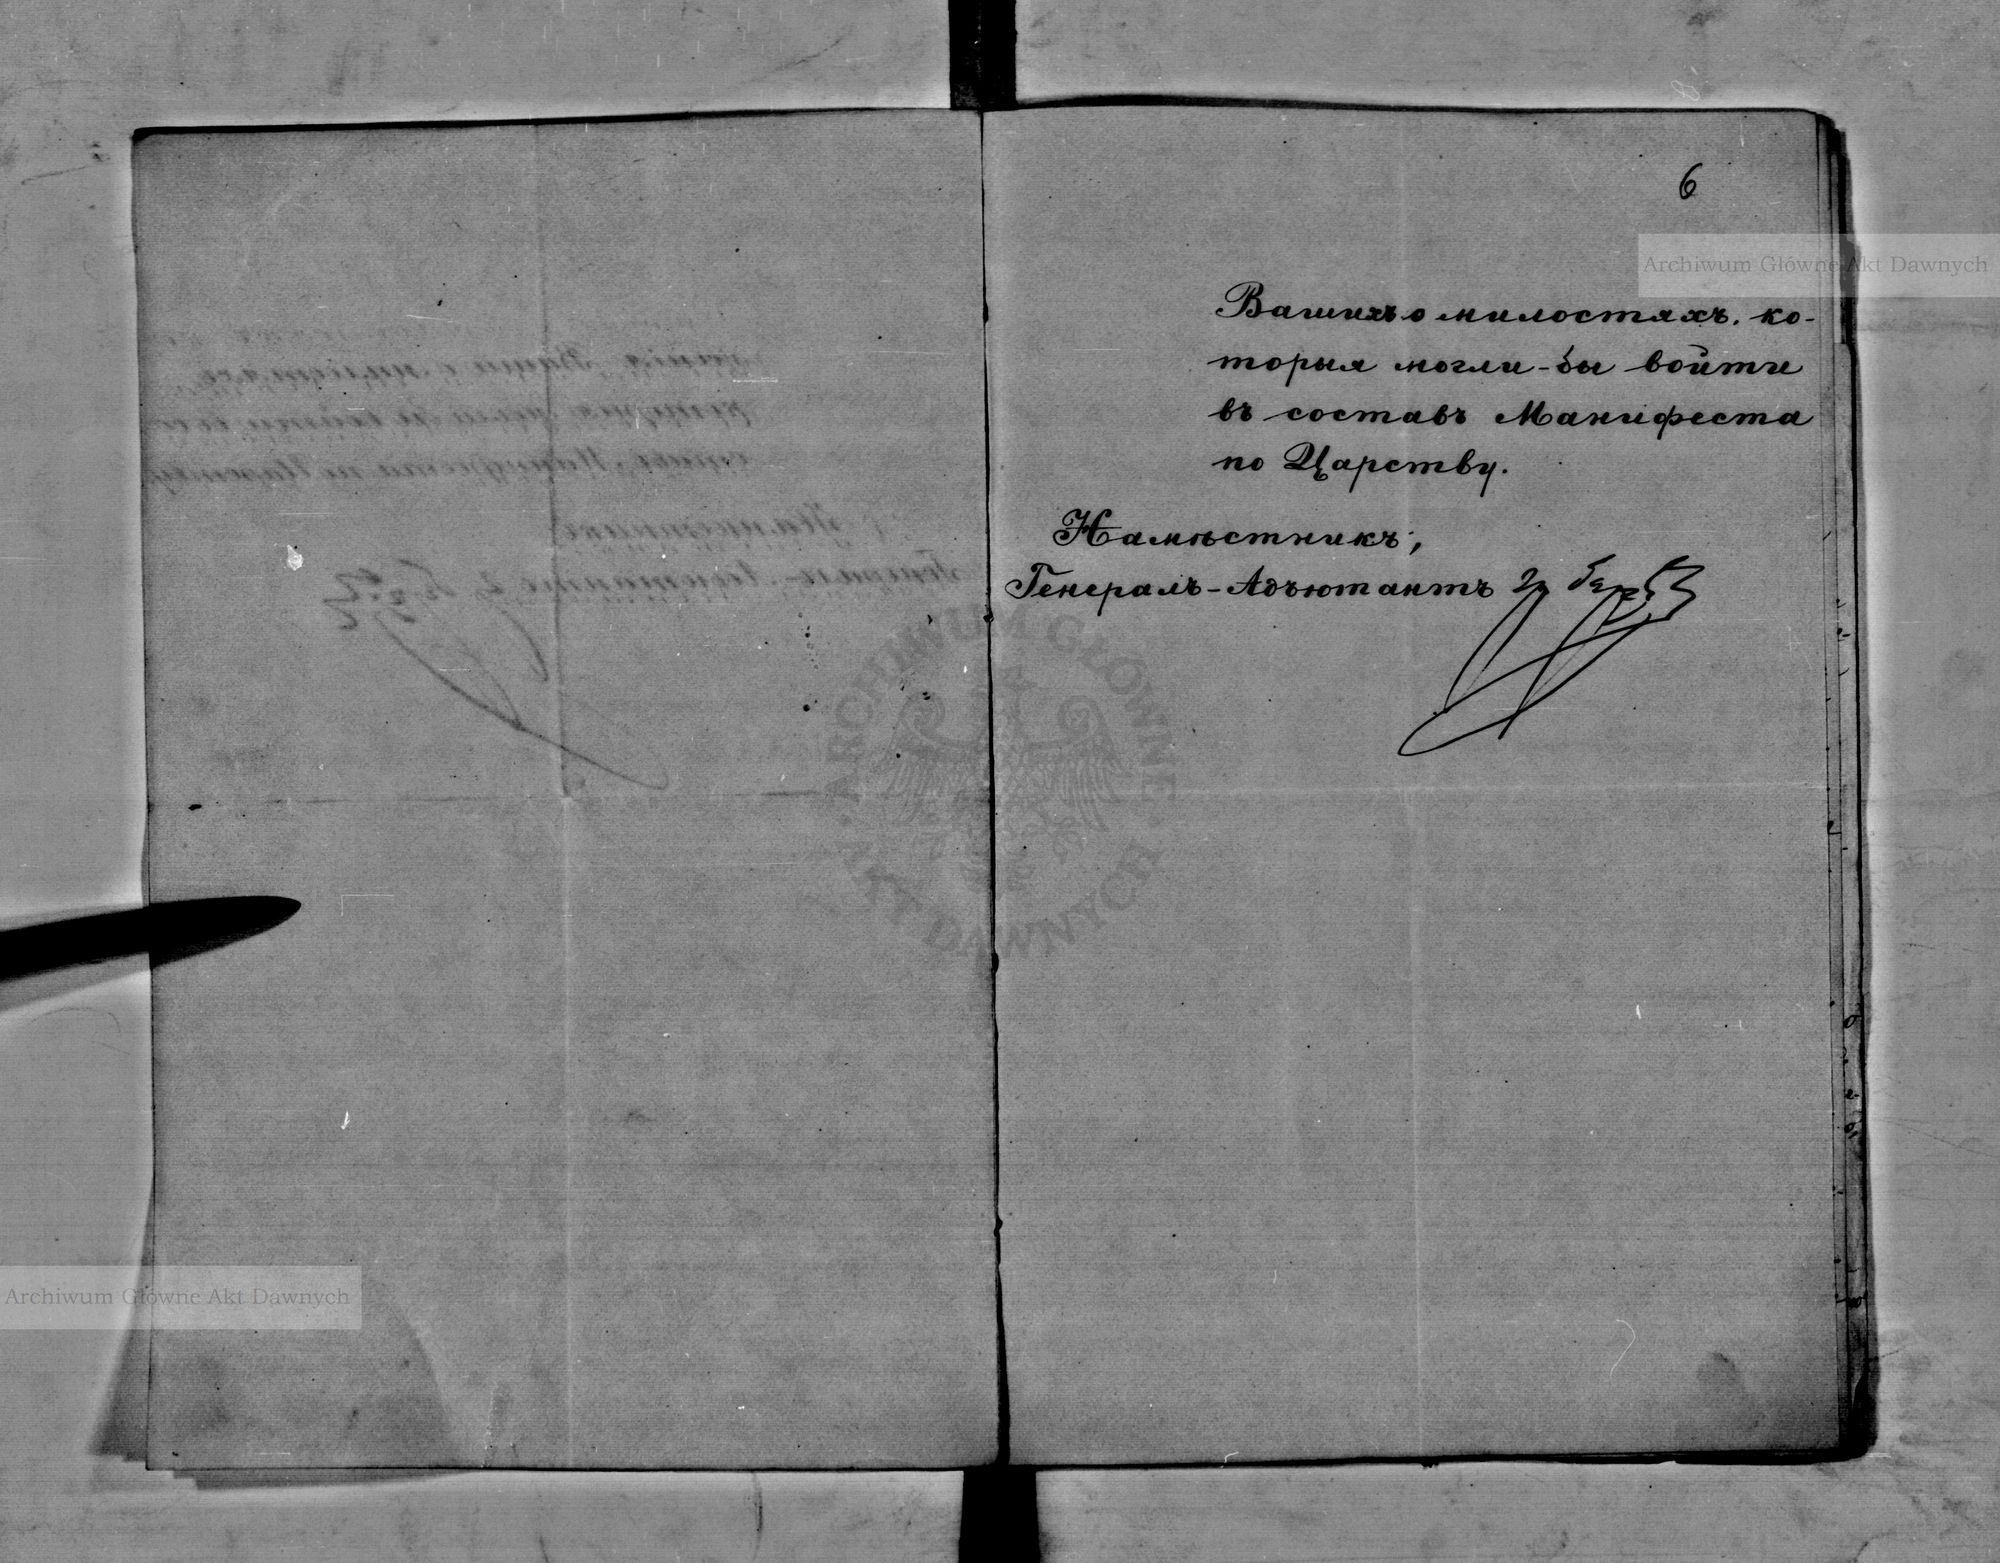 6
Archiwum Główne Akt Dawnych
Вашихъ о милостяхъ, ко-
торыя могли-бы войти
въ составъ Манифеста
по Царству.
Намѣстникъ,
Генералъ-Адъютантъ
ARCHIWUM GŁÓWNE
AKT DAWNYCH
Archiwum Główne Akt Dawnych